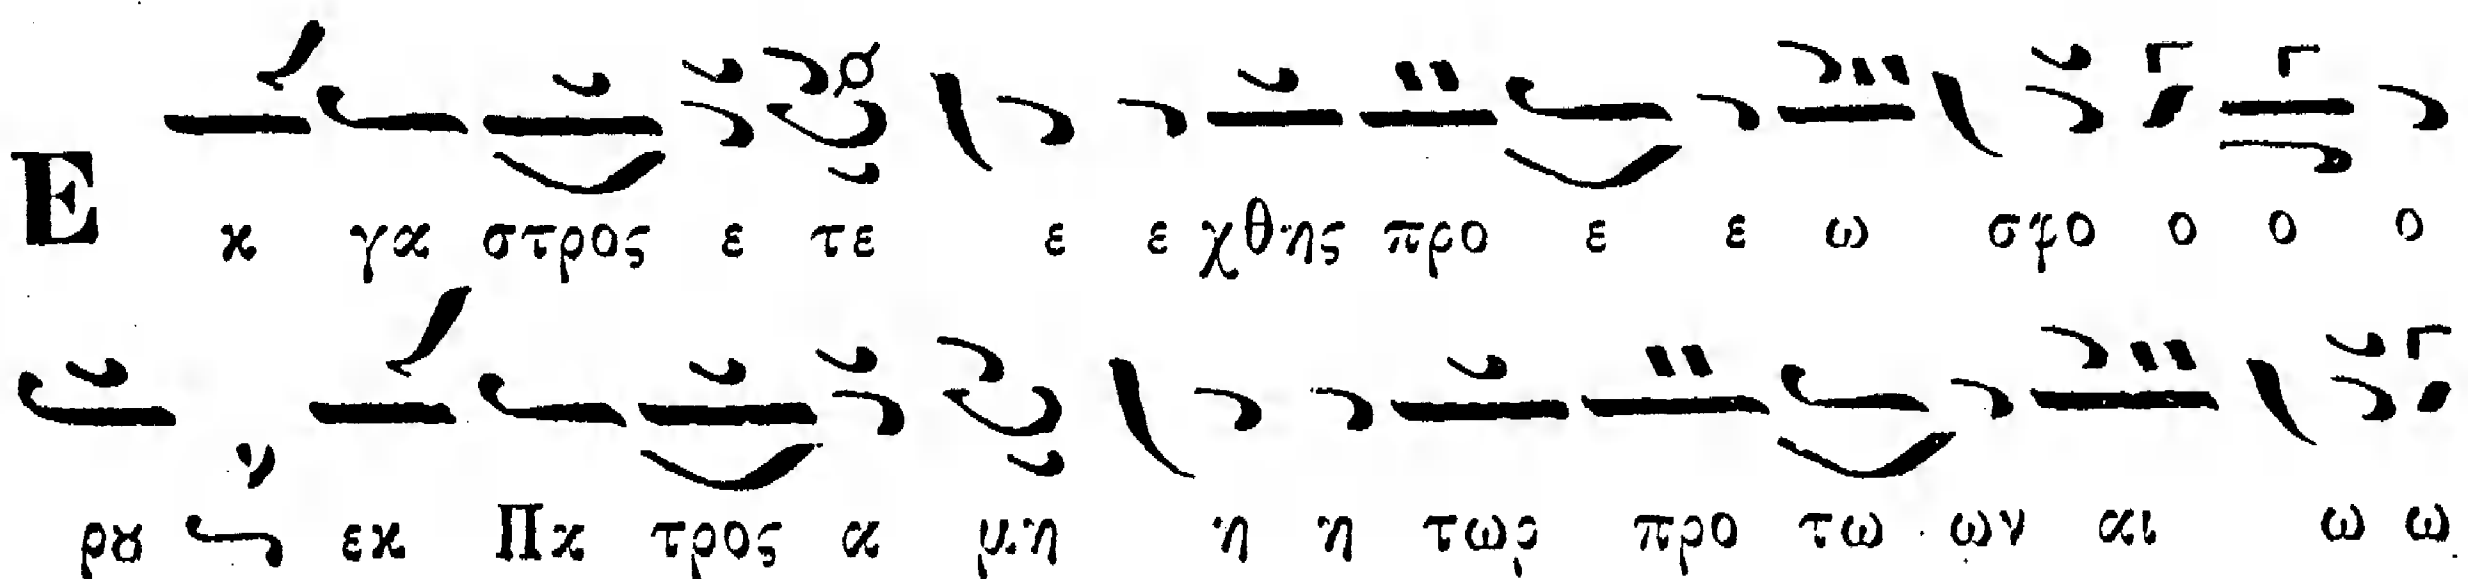 Εκ γα στρος ε τε ε ε χθης προ ε ε ω σφο ο ο ο
ρȣ ν εκ Πα τρος α μη η η τωρ προ τω ων αι ω ω